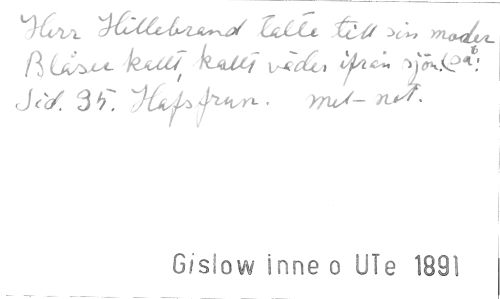 Herr Hillebrand talte till sin moder
Blåser kallt, kallt väder ifrån sjön! (så!
Sid. 35. Hafsfrun. mel-not.
Gislow inne o UTe 1891